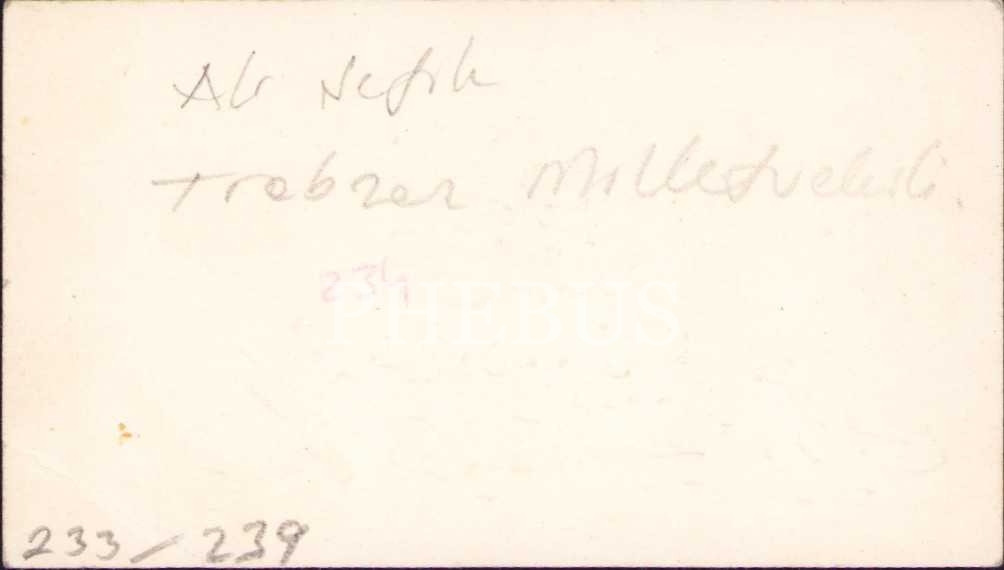 Ali Şefik
Trabzon Milletvekili.
234
PHEBUS
233 / 239